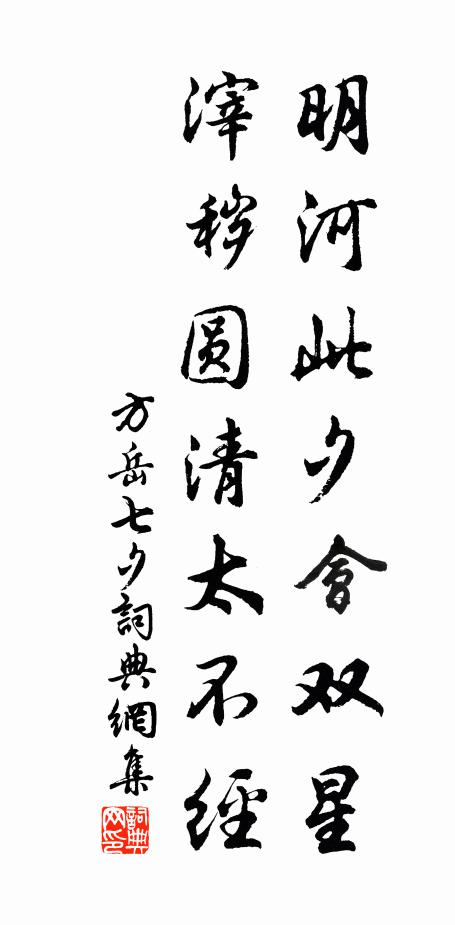 明河此夕會双星
滓秽圆清太不經
方岳七夕詞典網集
詞典网印